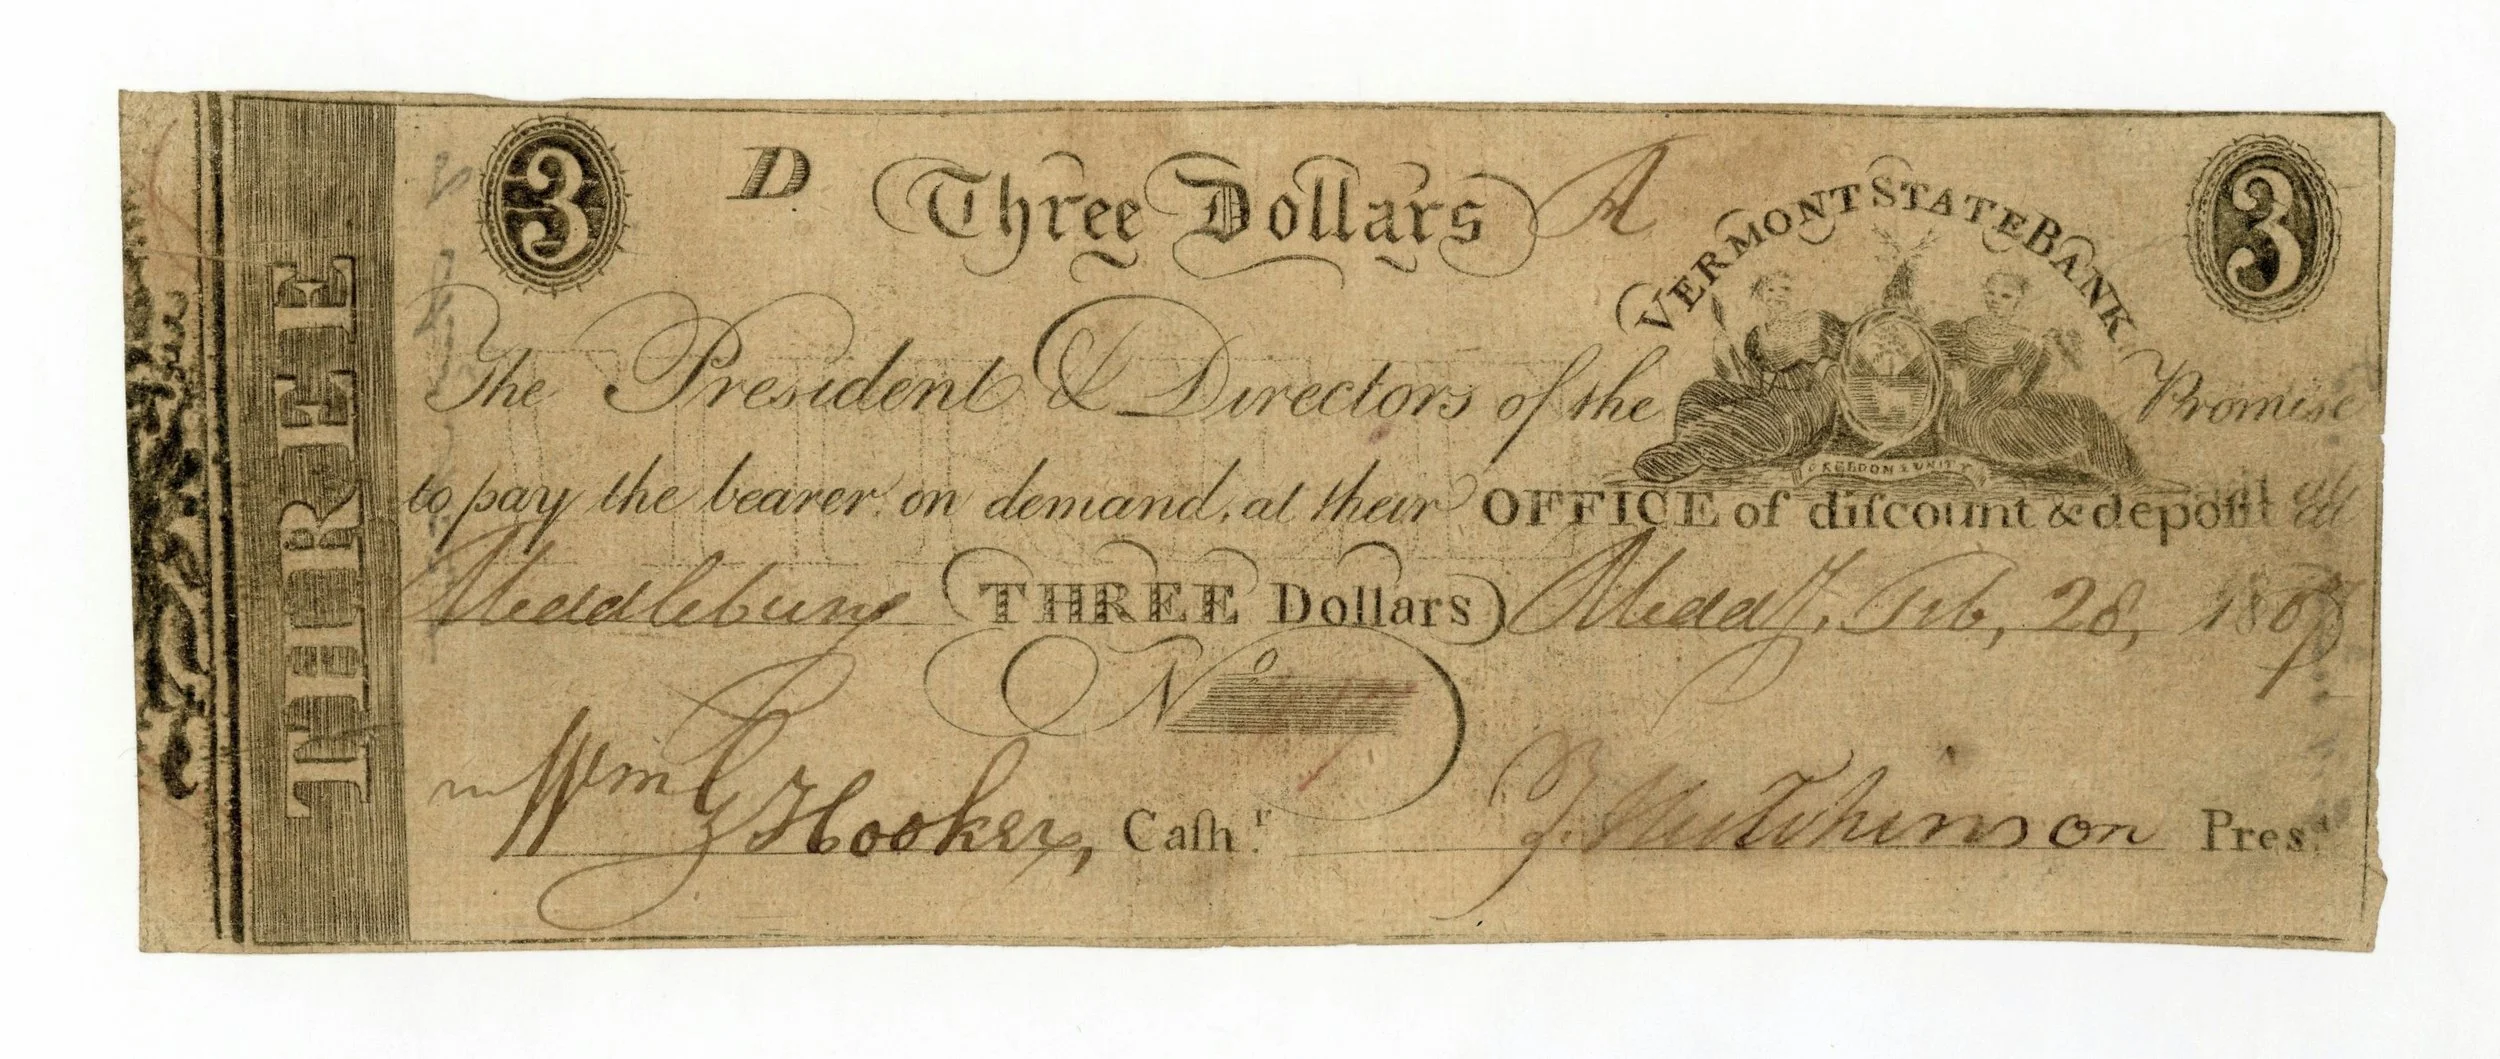 THREE
3 D Three Dollars A 3
VERMONT STATE BANK
The President & Directors of the Promise
FREEDOM & UNITY
to pay the bearer on demand, at their OFFICE of diſcount & depoſit at
Middlebury THREE Dollars Midd.y, Feb, 28, 1807
No
Wm G Hooker, Caſh.r T. Hutchinson Pres.t